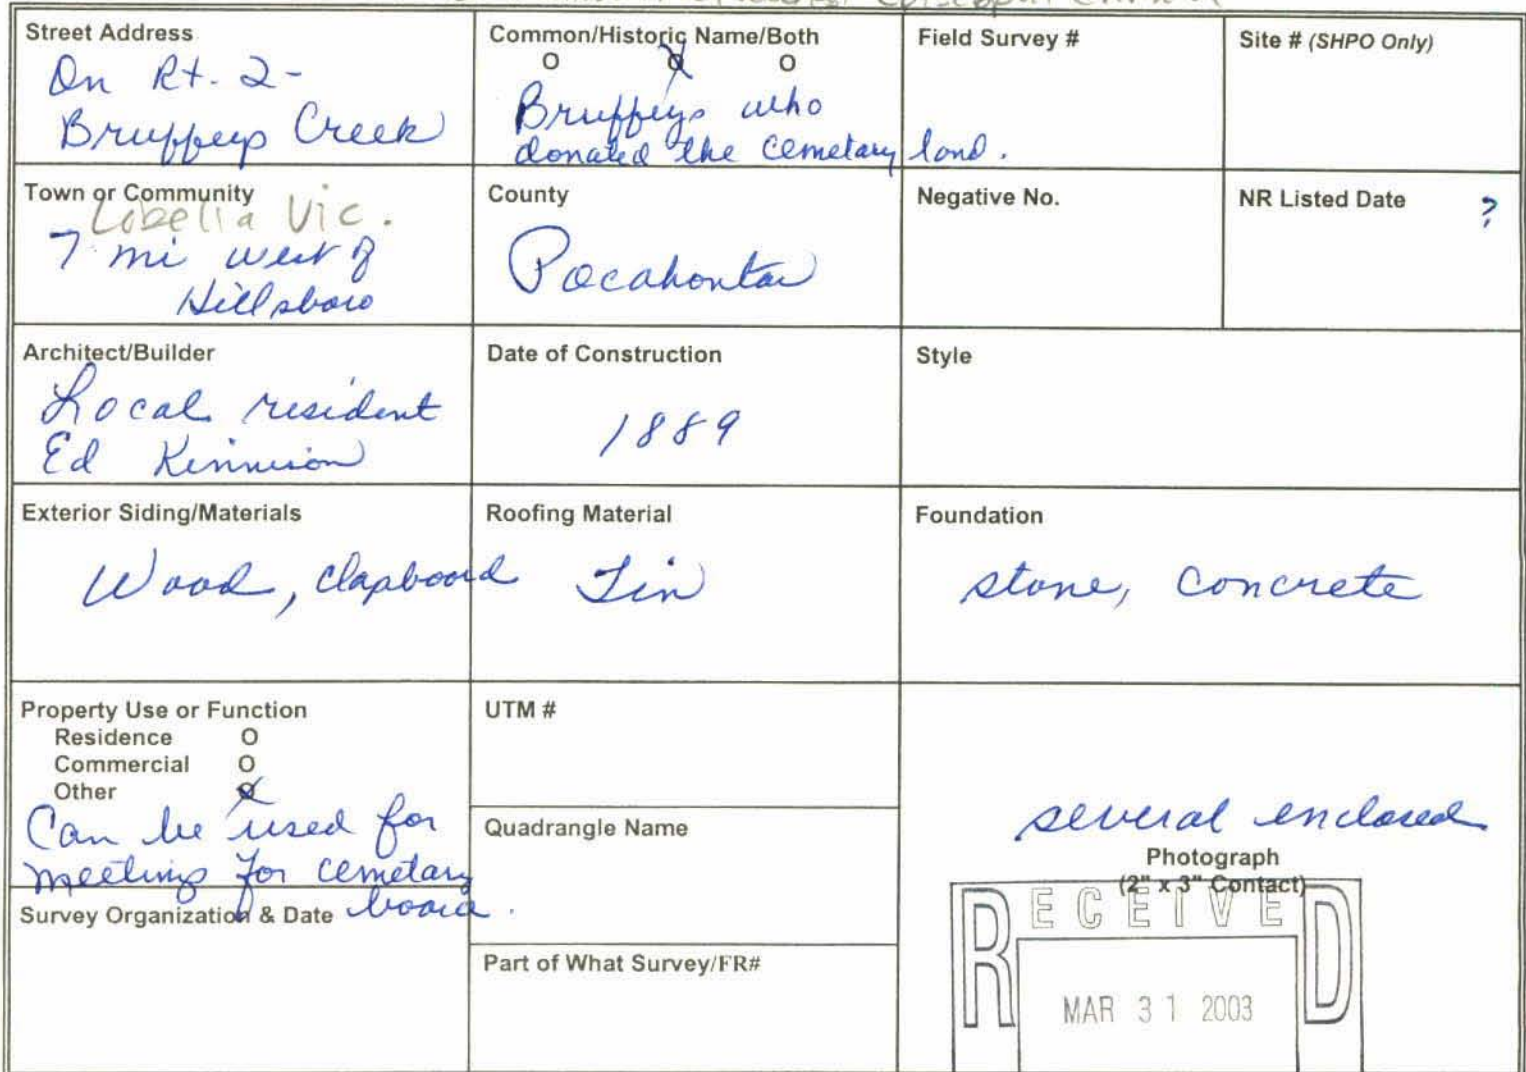 Episcopal Church
Street Address
On Rt. 2-
Bruffeys Creek
Common/Historic Name/Both
O O O
Bruffeys who
donated the cemetary land.
Field Survey #
Site # (SHPO Only)
Town or Community
Lobelia Vic.
7 mi west of
Hillsboro
County
Pocahontas
Negative No.
NR Listed Date ?
Architect/Builder
Local resident
Ed Kinnison
Date of Construction
1889
Style
Exterior Siding/Materials
Wood, clapboard
Roofing Material
Tin
Foundation
stone, concrete
Property Use or Function
Residence O
Commercial O
Other O
Can be used for
meetings for cemetary
board.
UTM #
Quadrangle Name
several enclosed
Photograph
(2" x 3" Contact)
Survey Organization & Date
Part of What Survey/FR#
RECEIVED
MAR 31 2003